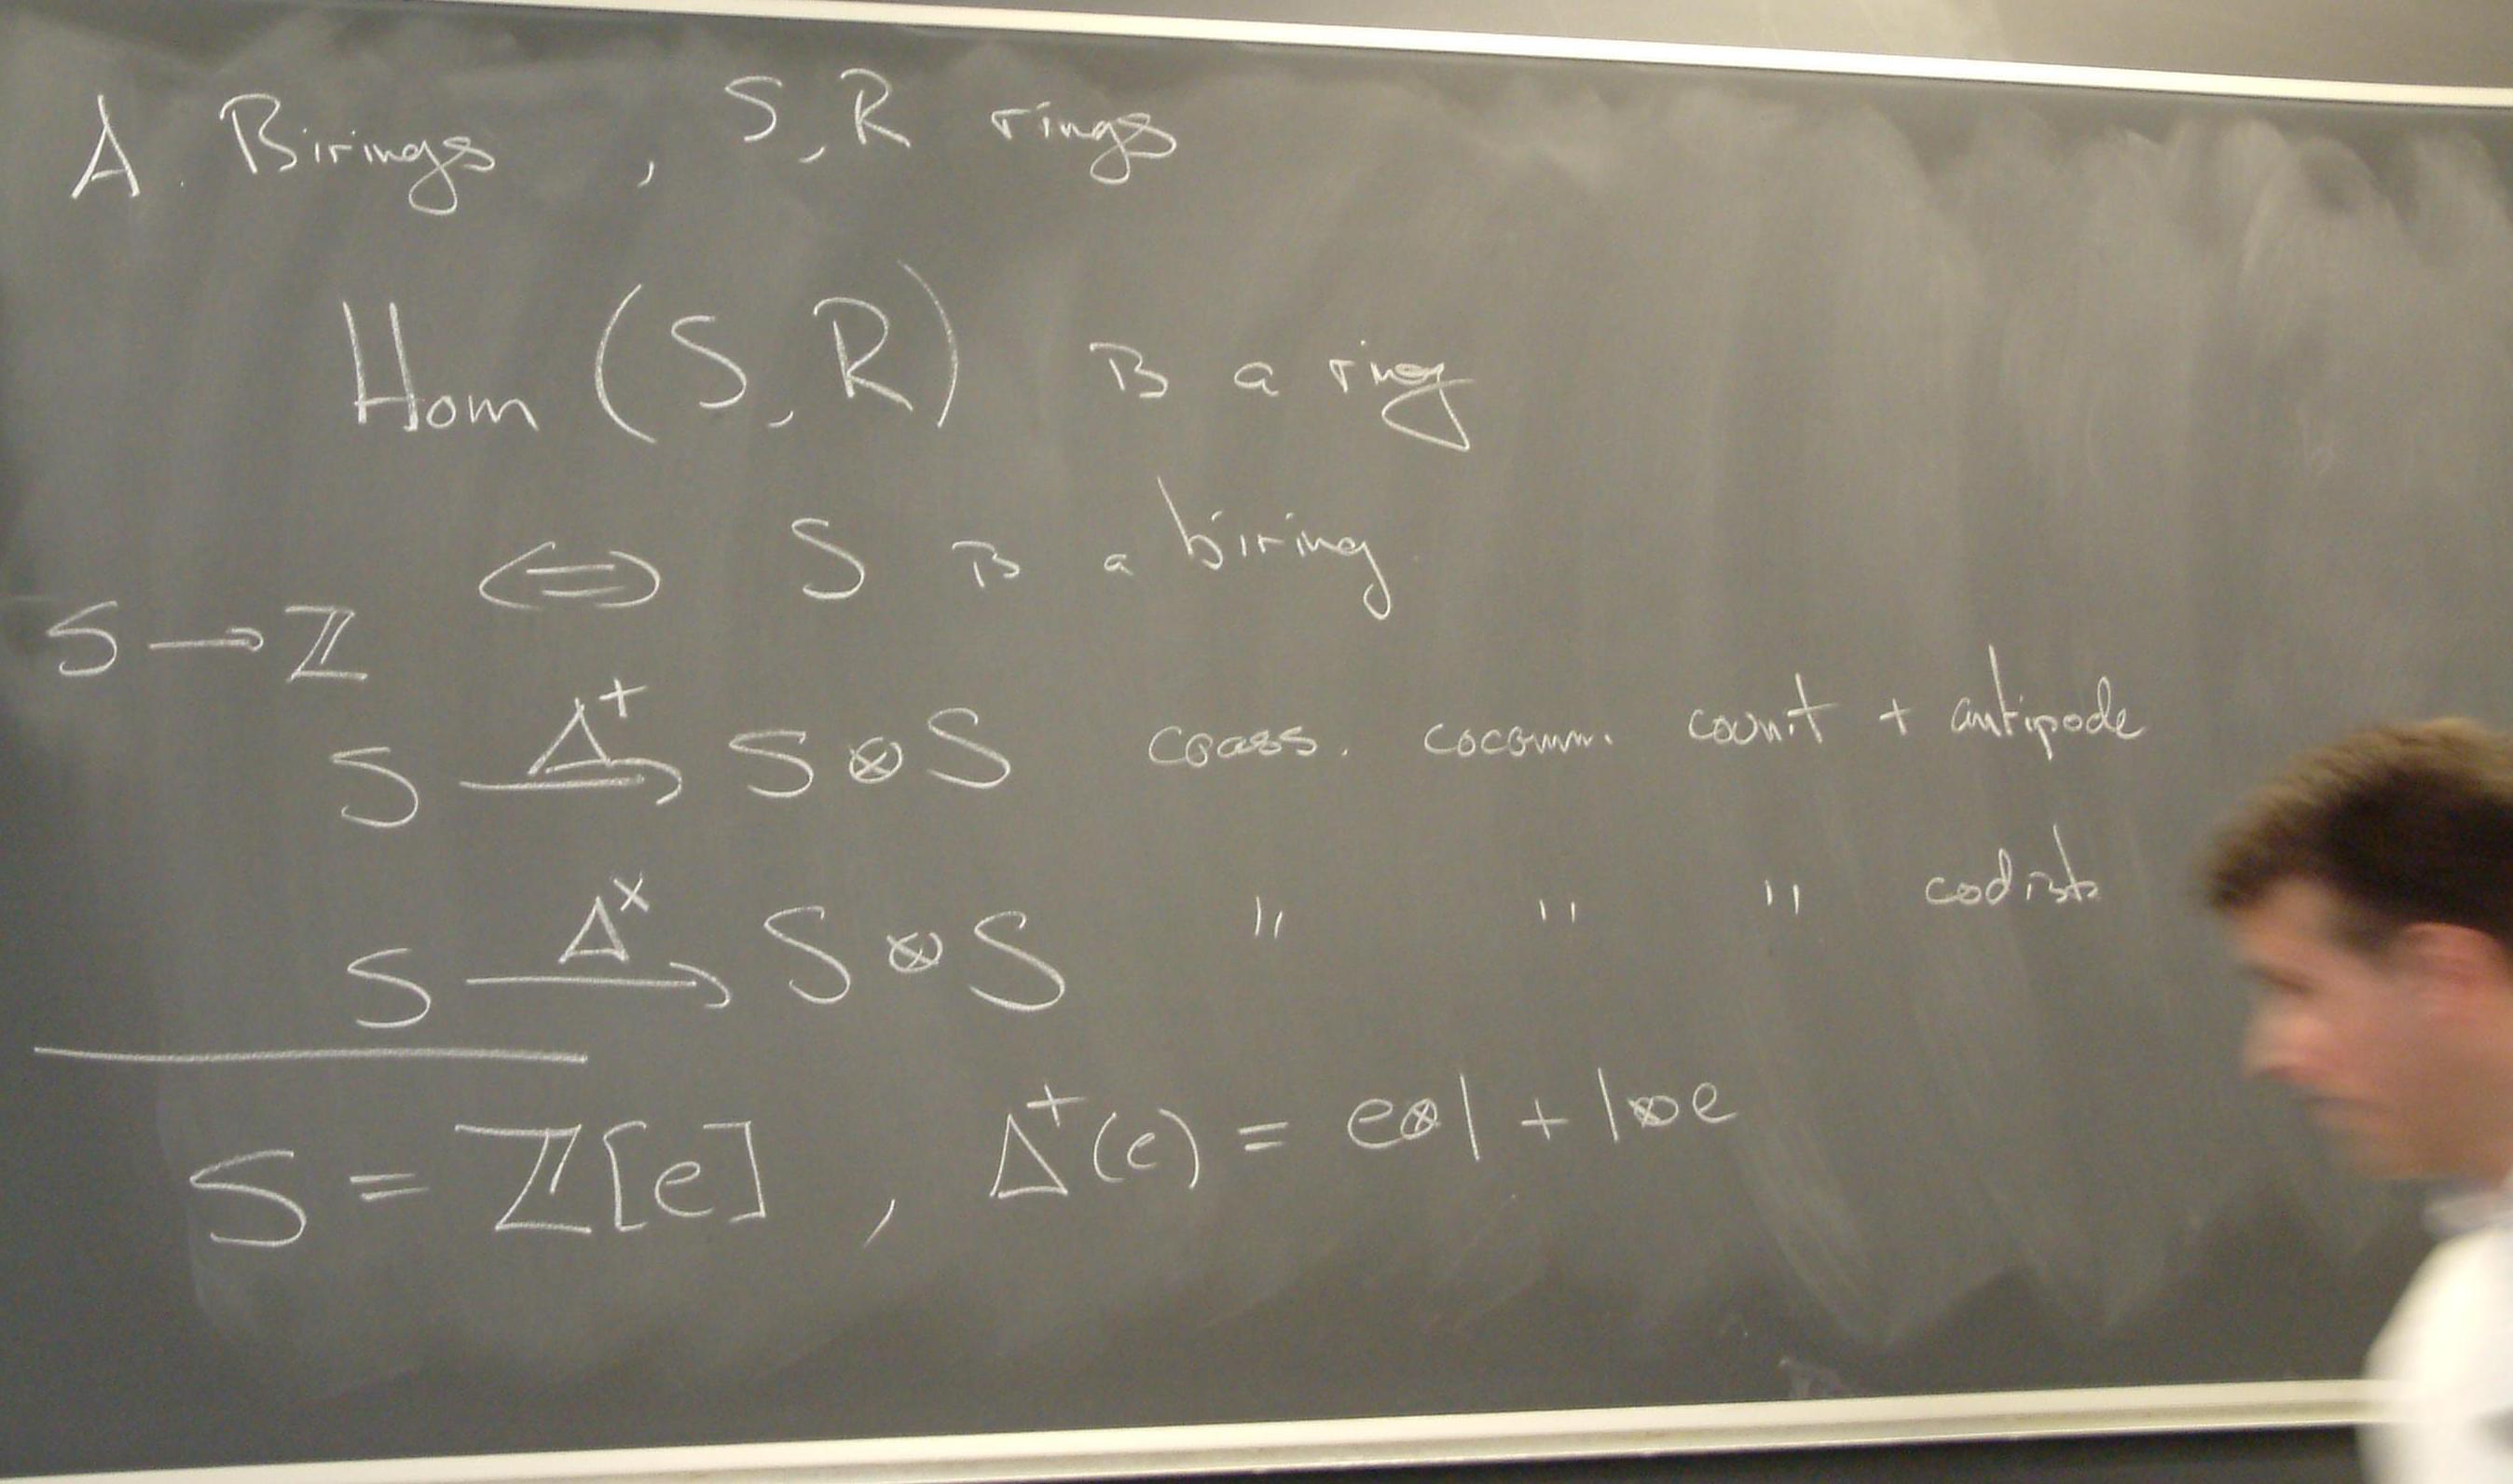 A. Birings, S, R rings
Hom (S, R) is a ring
⟺ S is a biring
S → ℤ
S —Δ⁺→ S ⊗ S coass. cocomm. counit + antipode
S —Δˣ→ S ⊗ S " " " codist.
S = ℤ[e], Δ⁺(e) = e⊗1 + 1⊗e